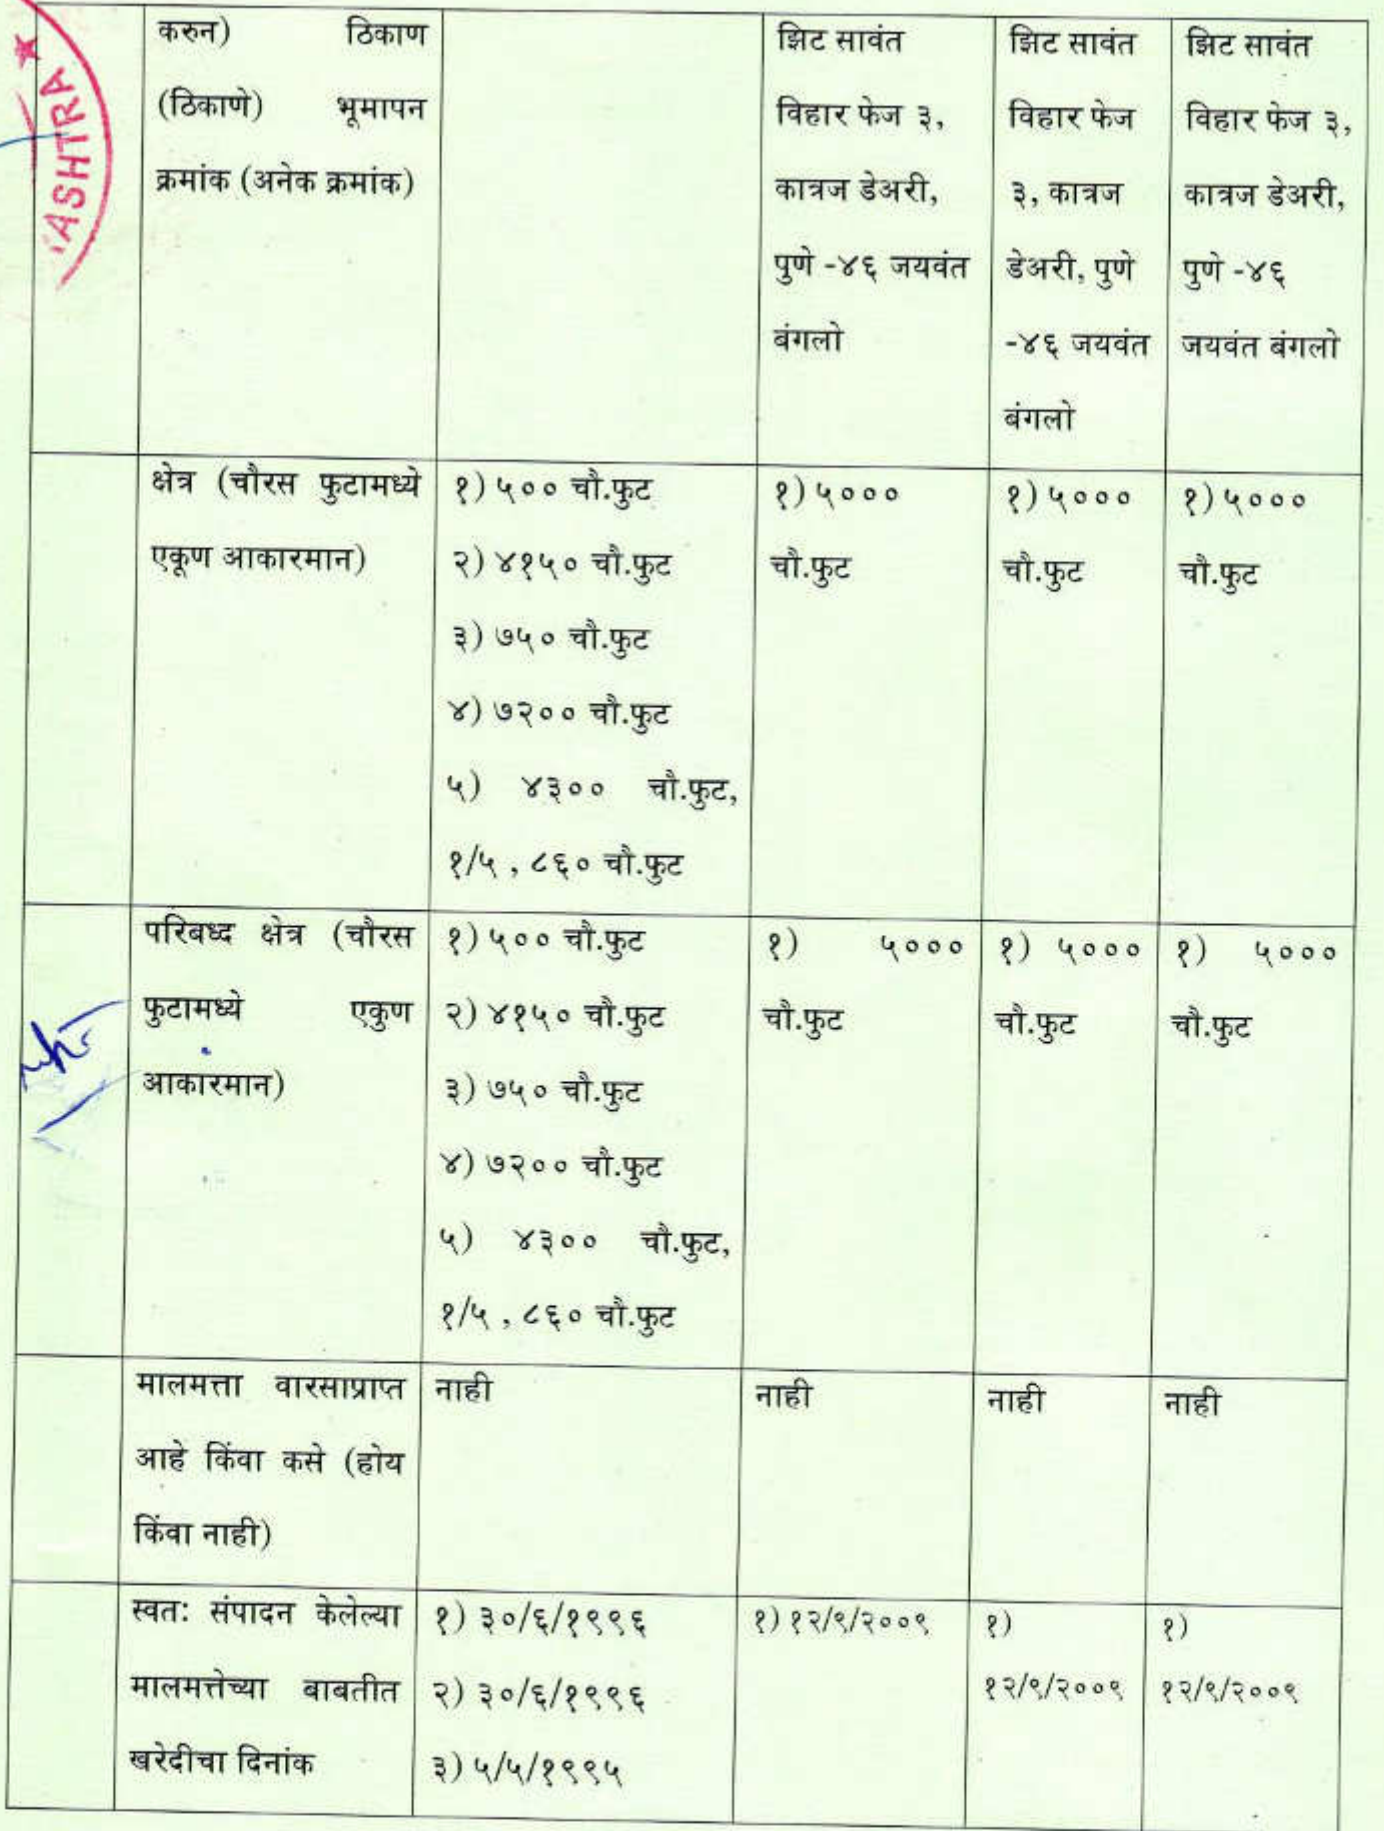 ASHTRA ★
करुन) ठिकाण
(ठिकाणे) भूमापन
क्रमांक (अनेक क्रमांक)
झिट सावंत
विहार फेज ३,
कात्रज डेअरी,
पुणे -४६ जयवंत
बंगलो
झिट सावंत
विहार फेज
३, कात्रज
डेअरी, पुणे
-४६ जयवंत
बंगलो
झिट सावंत
विहार फेज ३,
कात्रज डेअरी,
पुणे -४६
जयवंत बंगलो
क्षेत्र (चौरस फुटामध्ये
एकूण आकारमान)
१) ५०० चौ.फुट
२) ४१५० चौ.फुट
३) ७५० चौ.फुट
४) ७२०० चौ.फुट
५) ४३०० चौ.फुट,
१/५ , ८६० चौ.फुट
१) ५०००
चौ.फुट
१) ५०००
चौ.फुट
१) ५०००
चौ.फुट
परिबध्द क्षेत्र (चौरस
फुटामध्ये एकुण
आकारमान)
१) ५०० चौ.फुट
२) ४१५० चौ.फुट
३) ७५० चौ.फुट
४) ७२०० चौ.फुट
५) ४३०० चौ.फुट,
१/५ , ८६० चौ.फुट
१) ५०००
चौ.फुट
१) ५०००
चौ.फुट
१) ५०००
चौ.फुट
मालमत्ता वारसाप्राप्त
आहे किंवा कसे (होय
किंवा नाही)
नाही
नाही
नाही
नाही
स्वत: संपादन केलेल्या
मालमत्तेच्या बाबतीत
खरेदीचा दिनांक
१) ३०/६/१९९६
२) ३०/६/१९९६
३) ५/५/१९९५
१) १२/९/२००९
१)
१२/९/२००९
१)
१२/९/२००९